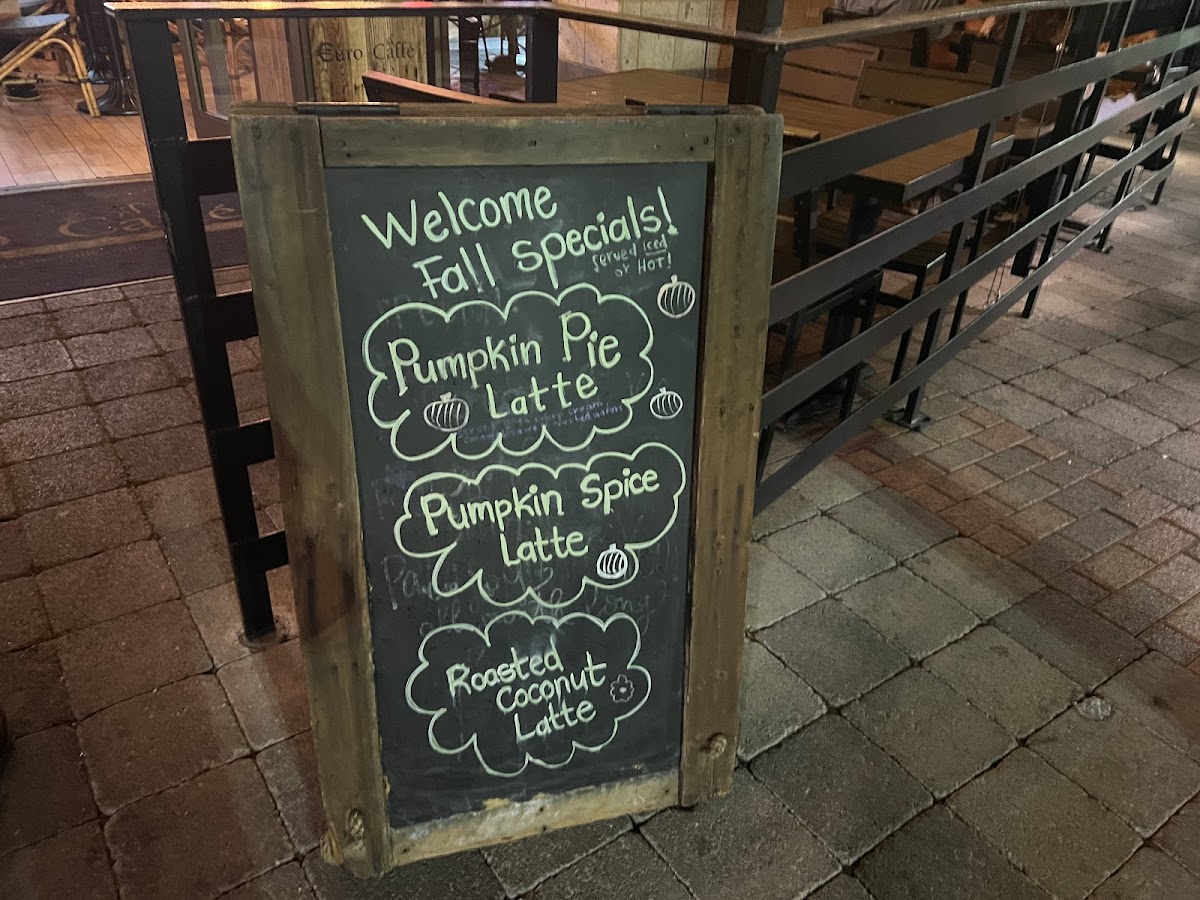 Euro Caffé
Welcome
Fall specials!
served iced
or HOT!
Pumpkin Pie
Latte
Pumpkin Spice
Latte
Roasted
Coconut
Latte